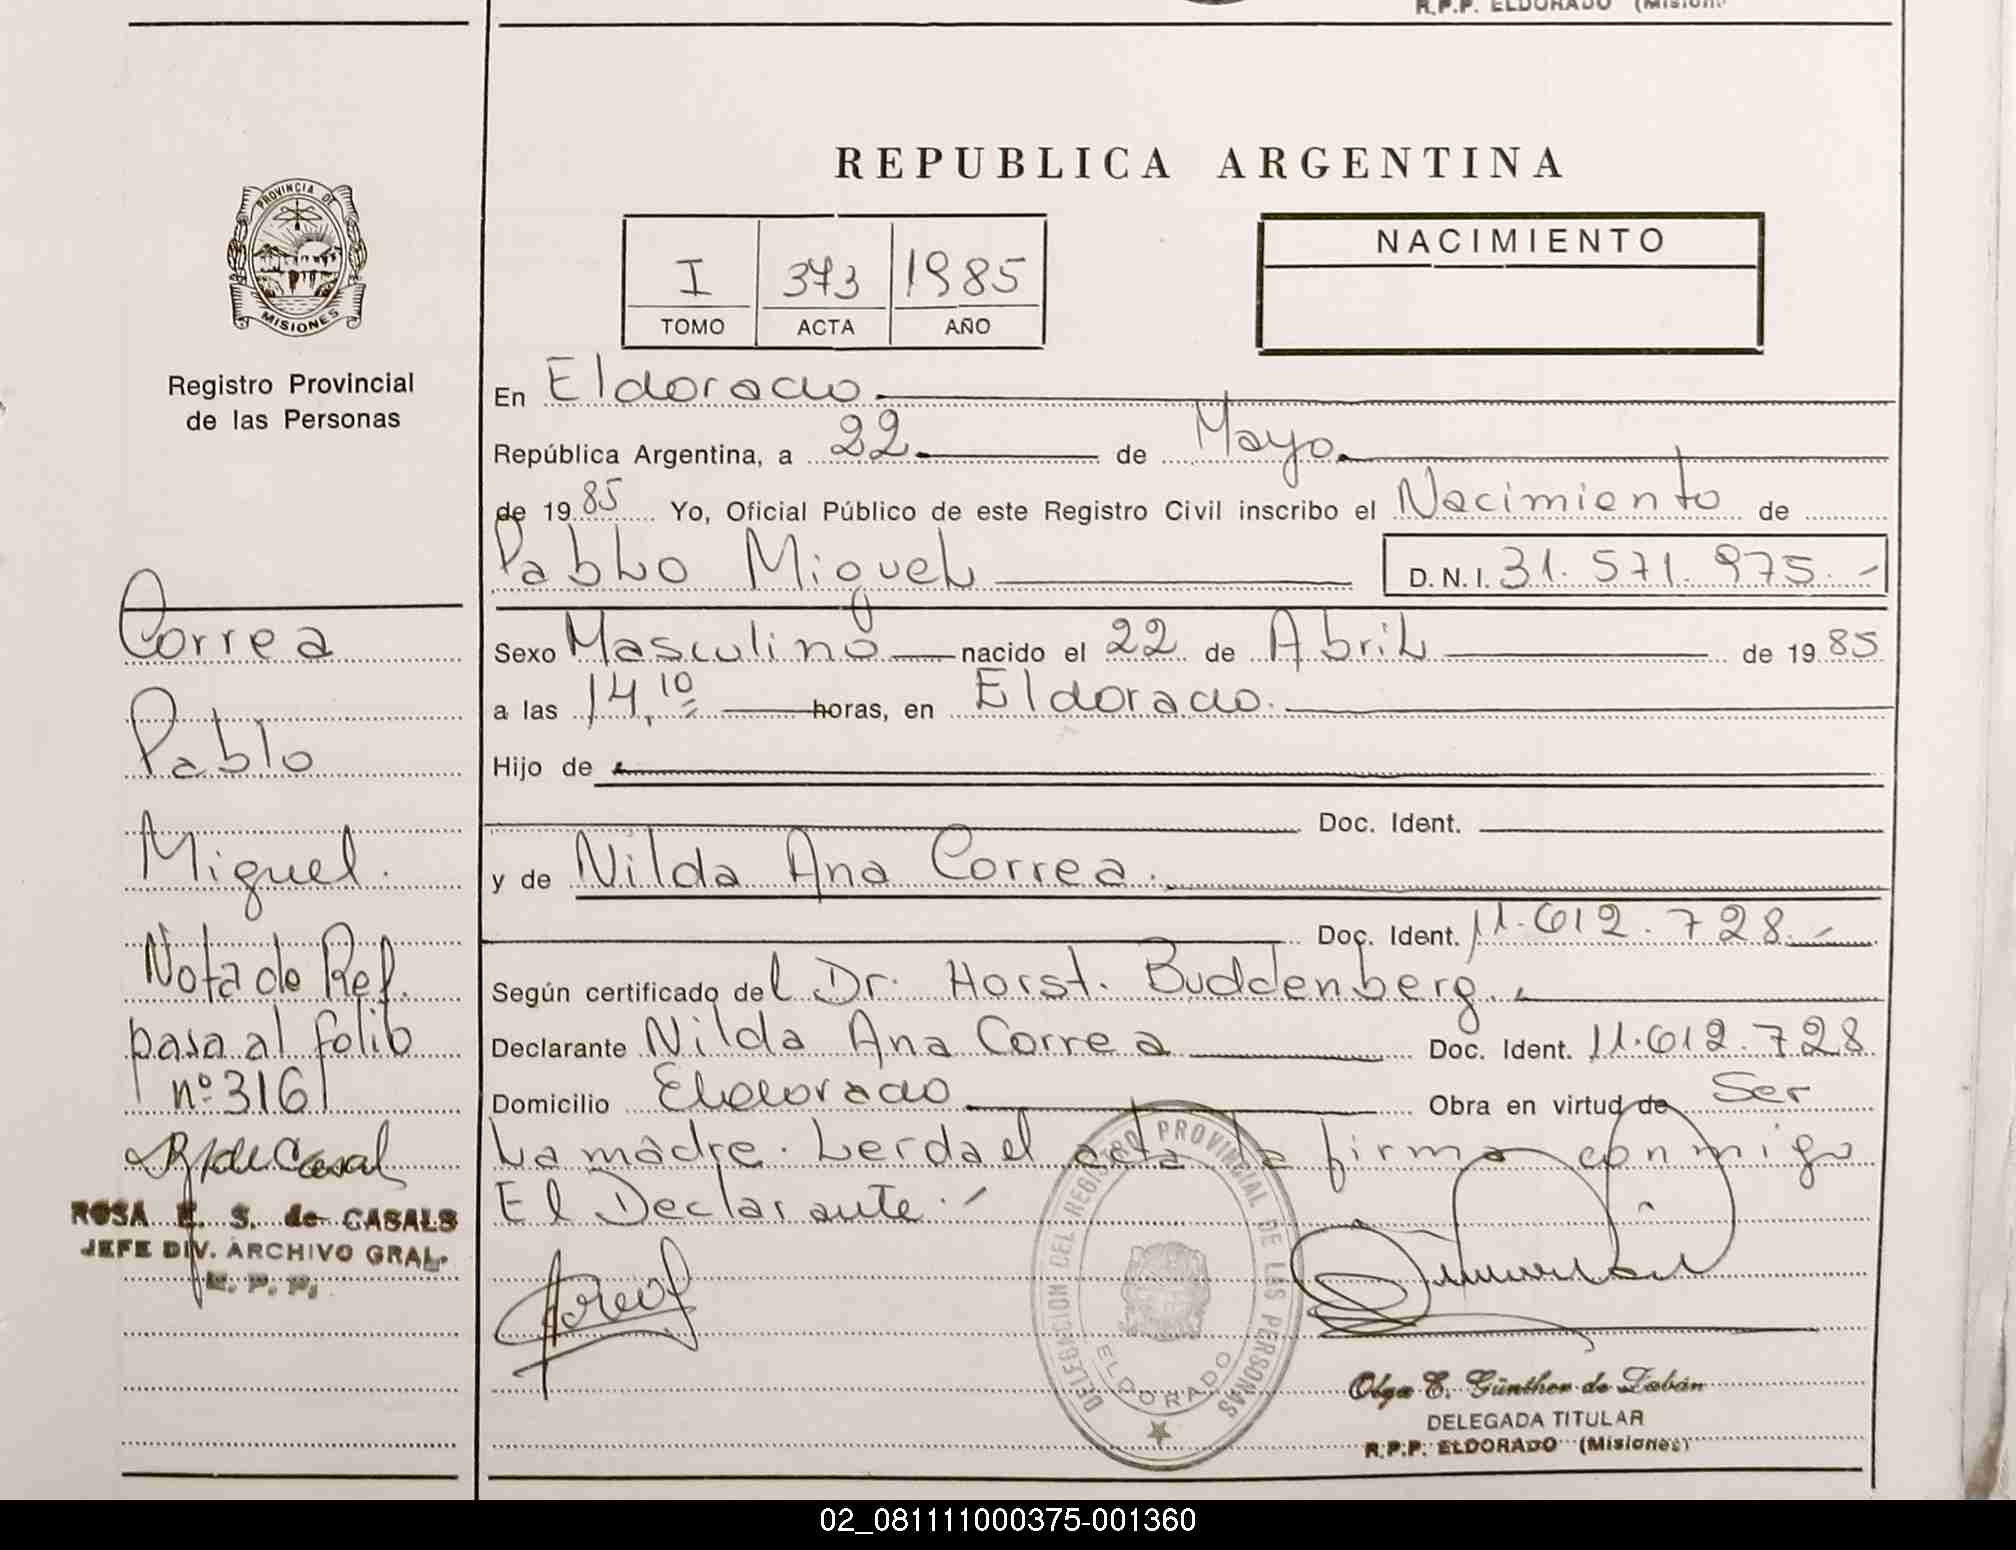 R.P.P. ELDORADO (Misiones)
REPUBLICA ARGENTINA
PROVINCIA DE
MISIONES
Registro Provincial
de las Personas
I 373 1985
TOMO ACTA AÑO
NACIMIENTO
En Eldorado
República Argentina, a 22 de Mayo
de 1985 Yo, Oficial Público de este Registro Civil inscribo el Nacimiento de
Pablo Miguel D.N.I. 31.571.975.-
Sexo Masculino nacido el 22 de Abril de 1985
a las 14,10 horas, en Eldorado.
Hijo de
Doc. Ident.
y de Nilda Ana Correa.
Doc. Ident. 11.612.728.-
Según certificado del Dr. Horst. Buddenberg.
Declarante Nilda Ana Correa Doc. Ident. 11.612.728
Domicilio Eldorado Obra en virtud de Ser
La madre. Leida el acta la firma conmigo
El Declarante.-
Correa
Pablo
Miguel.
Nota de Ref.
pasa al folio
nº 316
ROSA E. S. de CASALS
JEFE DIV. ARCHIVO GRAL.
R. P. P.
DELEGACION DEL REGISTRO PROVINCIAL DE LAS PERSONAS
ELDORADO
Olga E. Günther de Zabán
DELEGADA TITULAR
R.P.P. ELDORADO (Misiones)
02_081111000375-001360